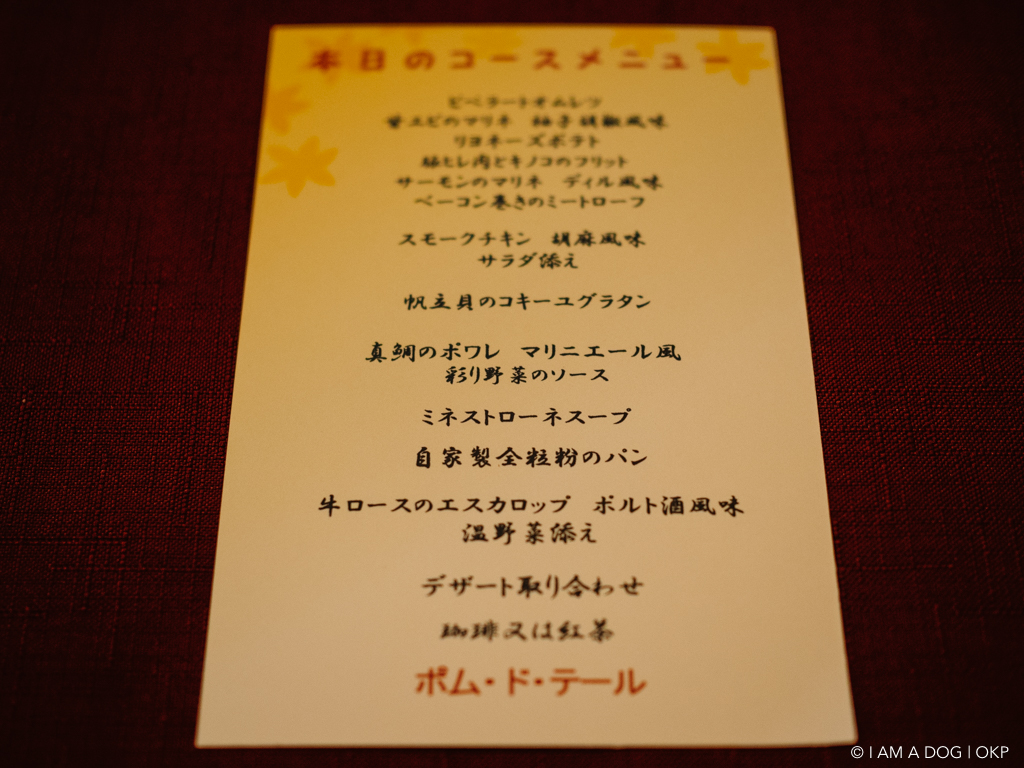 本日のコースメニュー
ピペラートオムレツ
甘エビのマリネ 柚子胡椒風味
リヨネーズポテト
豚ヒレ肉とキノコのフリット
サーモンのマリネ ディル風味
ベーコン巻きのミートローフ
スモークチキン 胡麻風味
サラダ添え
帆立貝のコキーユグラタン
真鯛のポワレ マリニエール風
彩り野菜のソース
ミネストローネスープ
自家製全粒粉のパン
牛ロースのエスカロップ ポルト酒風味
温野菜添え
デザート取り合わせ
珈琲又は紅茶
ポム・ド・テール
© I AM A DOG | OKP